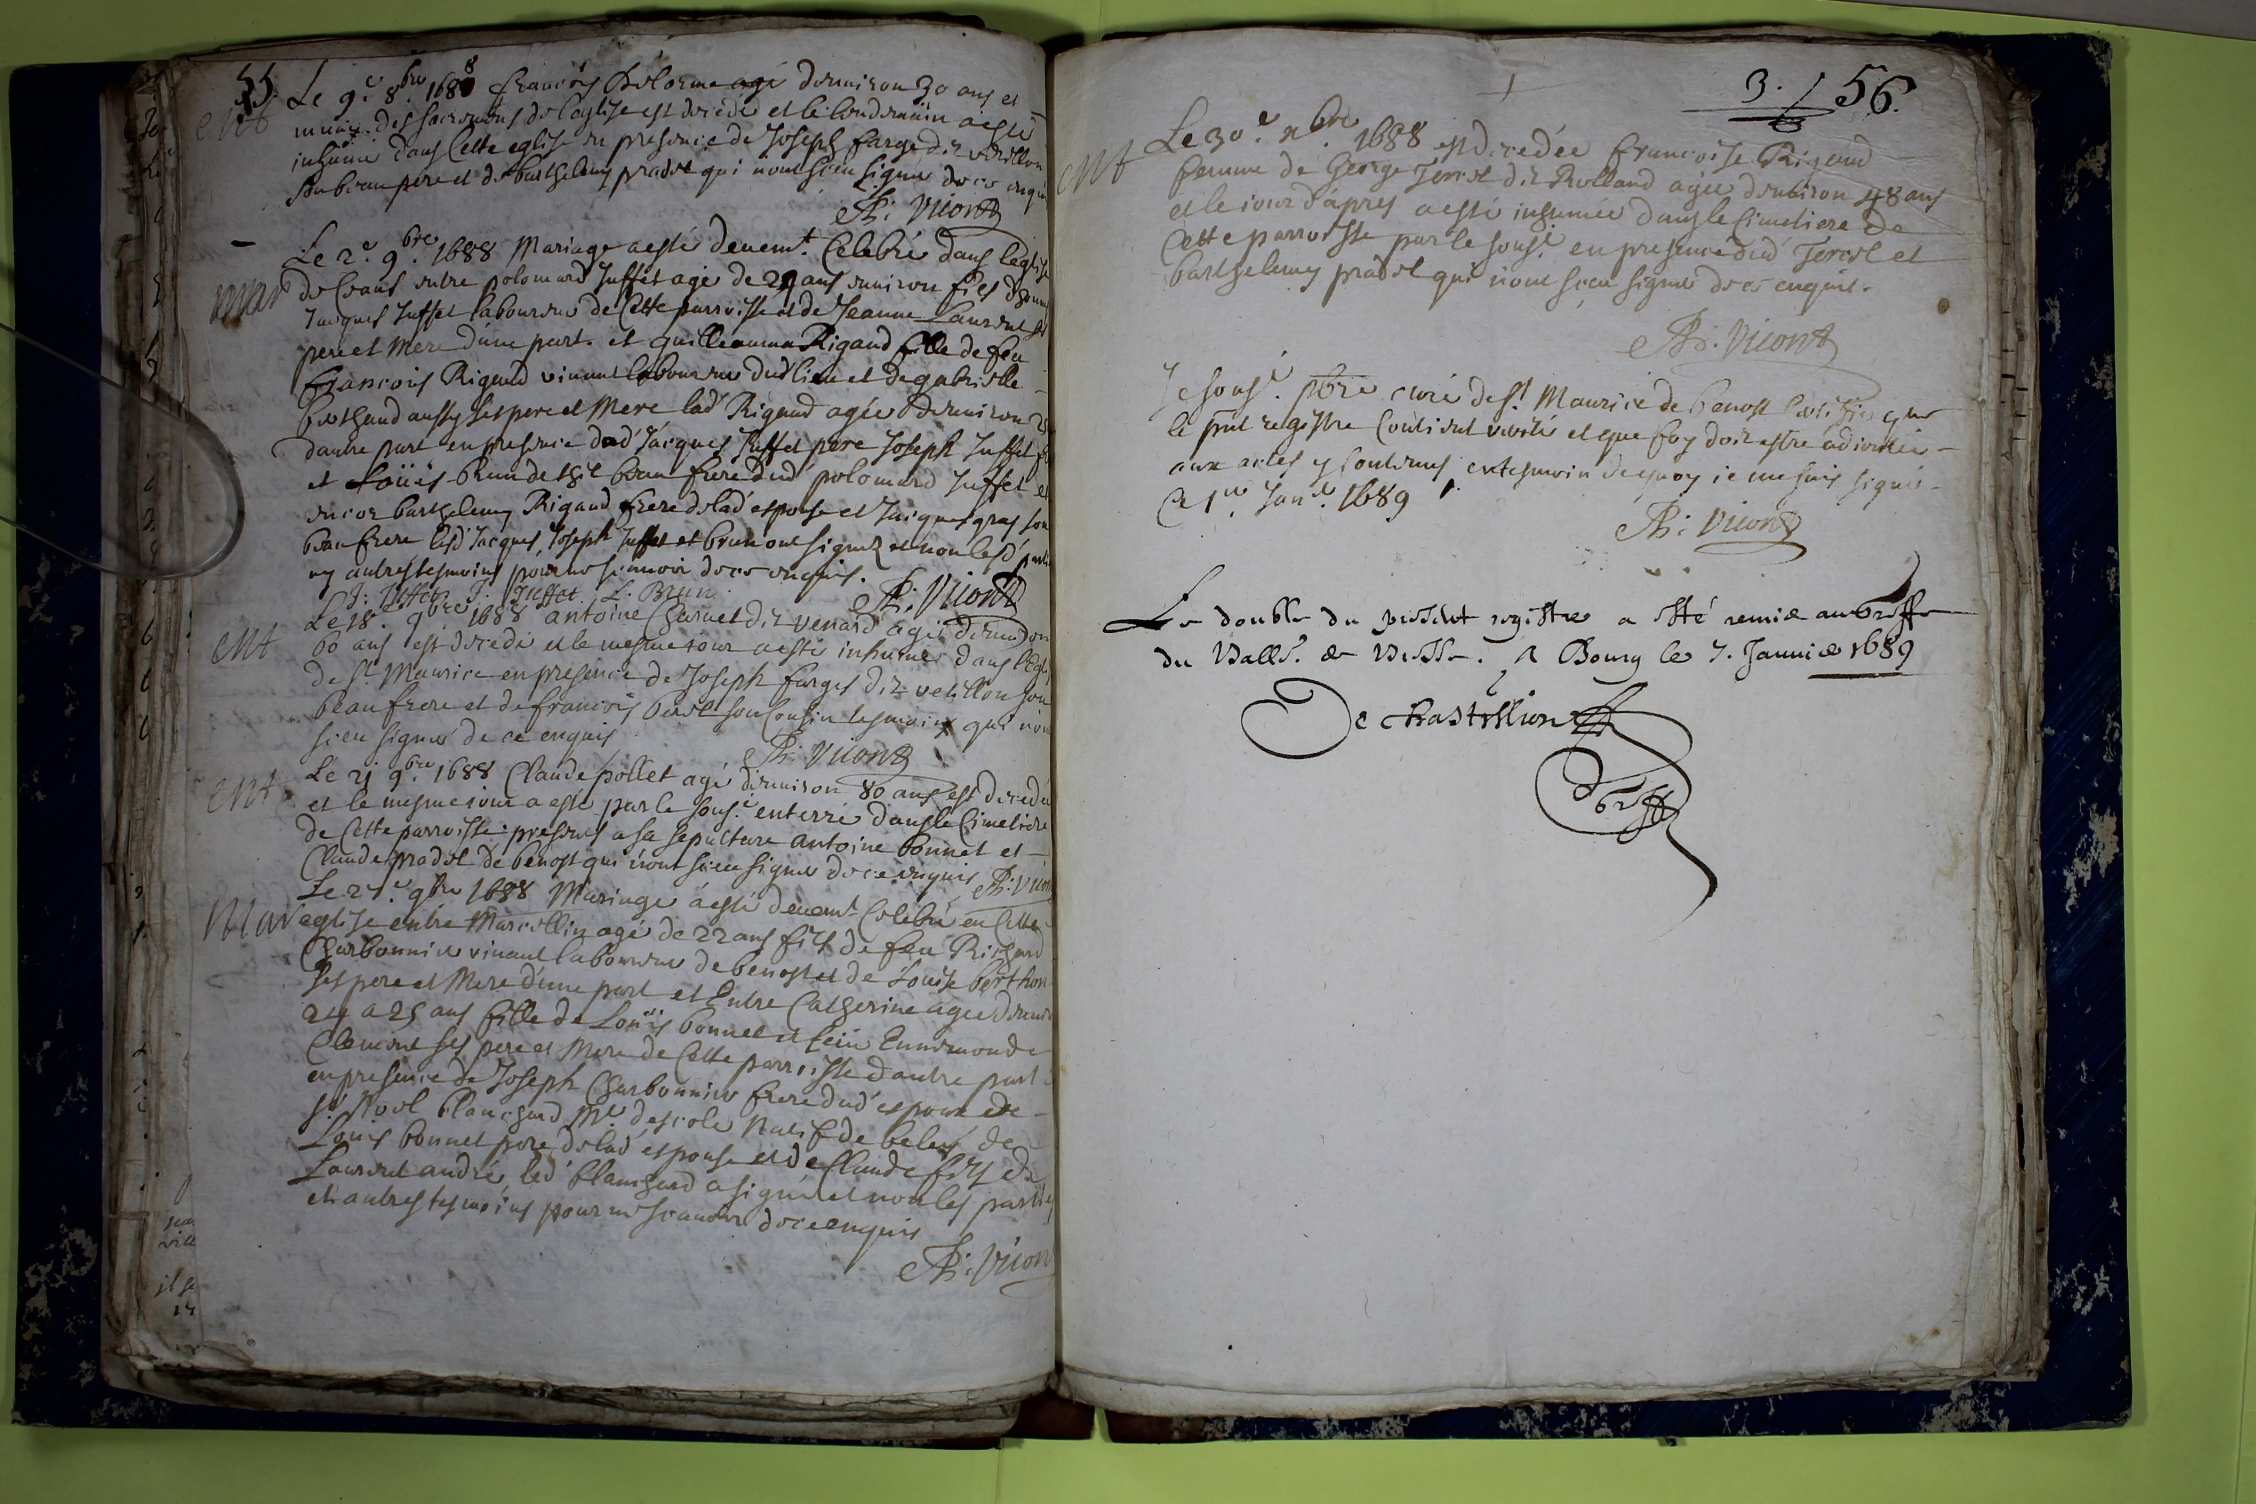 55.
Le 9.e 8.bre 1688 francois Delorme agé denuiron 30 ans et
ent
muni des sacremens de leglise est decedé et le lendemain a esté
inhumé dans Cette eglise en presence de Joseph farge dit vetillon
son beaupere et de barthelemy pradel qui nont sceu signer de ce enquis
Ph: Vicont
Le 2.e 9.bre 1688 Mariage a esté deuem.t Celebré dans leglise
mar
de Crans entre polomard Juffet agé de ans enuiron fils dhonn
Jacques Juffet laboureur de Cette parroisse et de Jeanne Laurent ses
pere et Mere d'une part. et guilleauma Rigaud fille de feu
francois Rigaud viuant laboureur dud lieu et de gabrielle
berthaud aussy ses pere et Mere lad' Rigaud agée denuiron
dautre part en presence dud' Jacques Juffet pere Joseph Juffet
et Loüis brun de beau frere dud polomard Juffet et
encor barthelemy Rigaud frere de lad' espouse et Jacques gras son
beau frere lesd' Jacques, Joseph Juffet et brun ont signez et non lesd' parties
ny autres tesmoins pour ne scauoir de ce enquis.
J: Juffet J: Juffet L: Brun Ph: Vicont
Le 18. 9bre 1688 antoine Charnet dit venard agé denuiron
ent
60 ans est decedé et le mesme iour a esté inhumé dans l'Eglise
de S.t Maurice en presence de Joseph farges dit vetillon son
beaufrere et de francois son Cousin tesmoins qui nont
sceu signer de ce enquis
Ph: Vicont
Le 21 9.bre 1688 Claude pollet agé denuiron 80 ans est decedé
ent
et le mesme iour a esté par le sous.é enterré dans le Cimetiere
de Cette parroisse: presens a sa sepulture antoine bonnet et
Claude pradel de benost qui nont sceu signer de ce enquis Ph: Vicont
Le 27.e 9bre 1688 Mariage a esté deuem.t Celebré en Cette
Mar
eglise entre Marcellin agé de 22 ans fils de feu Richard
Charbonnier viuant laboureur de benost et de Louise berthon
ses pere et Mere d'une part et Entre Catherine agée denuiron
24 a 25 ans fille de Loüis bonnet et feüe Ennemonde
Clement ses pere et Mere de Cette parroisse d'autre part
en presence de Joseph Charbonnier frere dud' espoux de
s.r Noel blanchard M.e d'escole natif de de
Louis bonnet pere de lad' espouse et de Claude fils de
Laurent andré, led' blanchard a signé et non les parties
et autres tesmoins pour ne scauoir de ce enquis
Ph: Vicont
3. 56.
Le 30.e 1688 est decedée francoise Rigaud
ent
femme de George Tercel dit Rolland agée denuiron 48 ans
et le iour d'apres a esté inhumée dans le Cimetiere de
Cette parroisse par le sous.é en presence dud' Tercel et
barthelemy pradel qui nont sceu signer de ce enquis.
Ph: Vicont
Je sous.é pbre curé de S.t Maurice de benost certifie que
le pnt registre Contient verité et que foy doit estre adioutée
aux actes y contenus en tesmoin de quoy ie me suis signé
Ce 1.er Jan.r 1689
Ph: Vicont
Le double du present registre a esté remis au Greffe
du Baill.e de Bresse. A Bourg le 7. Januier 1689
De Chastillion
Greff